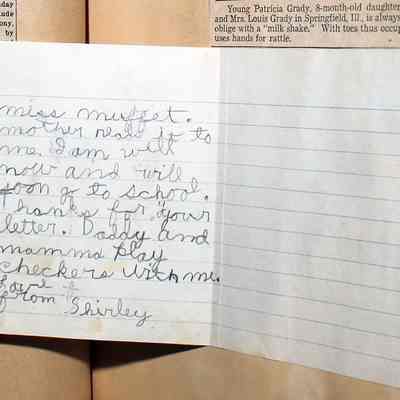 day
ude
ony,
by
Young Patricia Grady, 8-month-old daughter
and Mrs. Louis Grady in Springfield, Ill., is always
oblige with a "milk shake." With toes thus occup
uses hands for rattle.
miss muffet.
mother reads it to
me. I am well
now and will
soon go to school.
Thanks for your
letter. Daddy and
mamma play
checkers with me.
Love
from Shirley